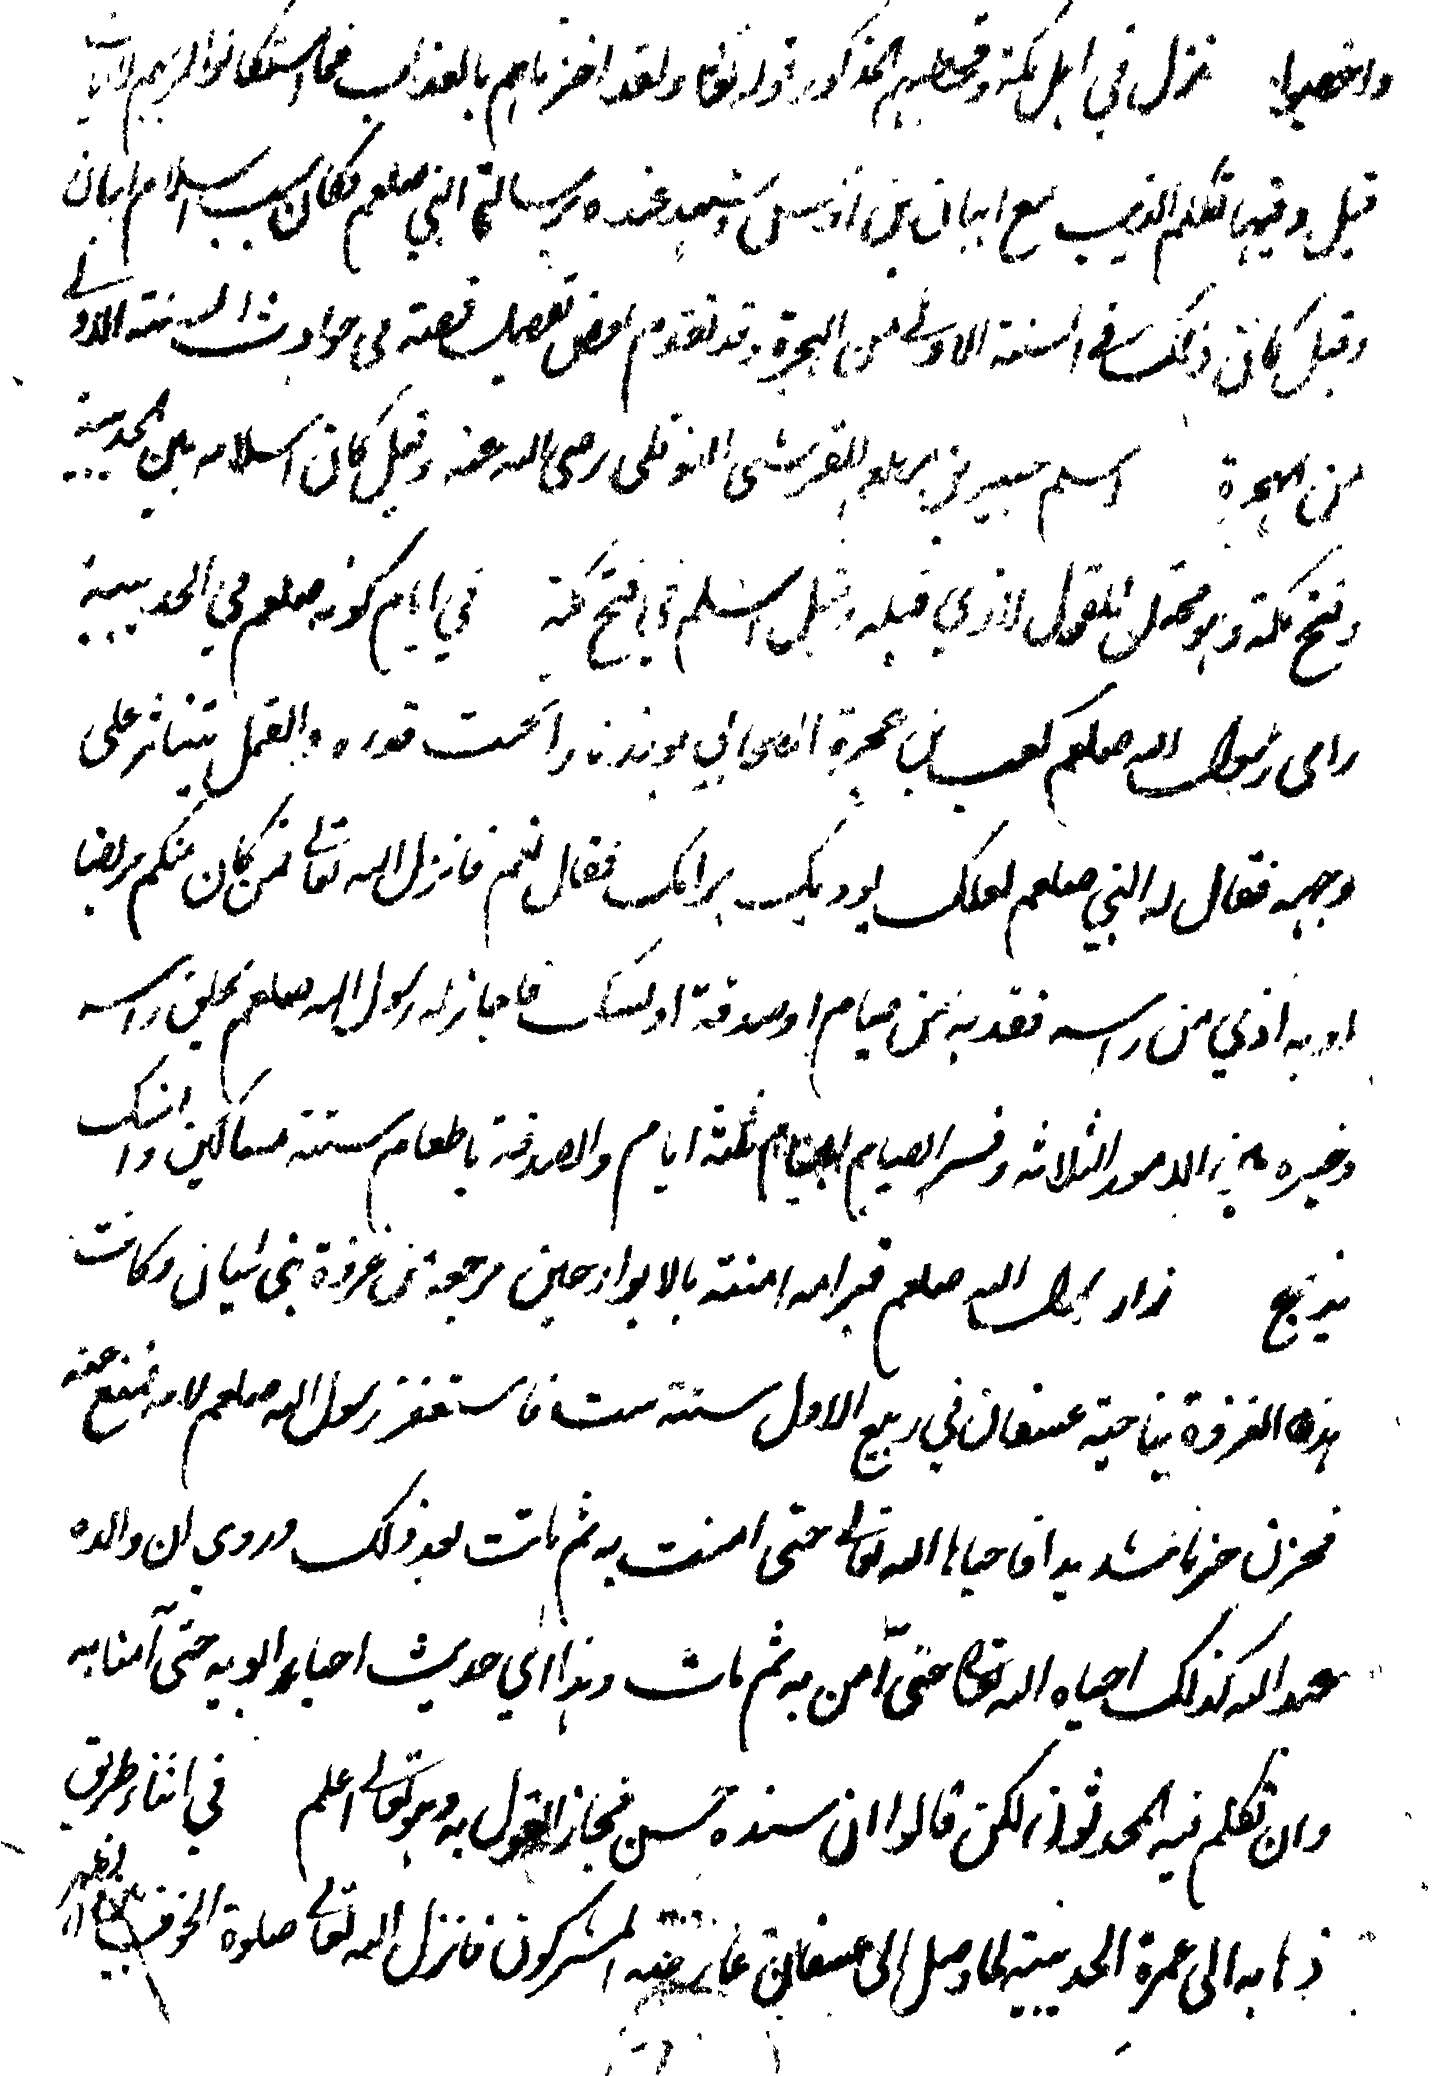 نزل في اهل مكة وقحطهم المذكور قوله تعا ولقد اخذناهم بالعذاب فما استكانوا لربهم الايات
قيل وفيها تكلم الذيب مع اهبان بن اوس وشهد عنده برسالة النبي صلعم فكان سبب اسلام اهبان
وقيل كان ذلك في السنة الاولى من الهجرة وقد تقدم بعض تفصيل قصته في حوادث السنة الاولى
من الهجرة اسلم جبير بن مطعم القرشي النوفلي رضي الله عنه وقيل كان اسلامه بين الحديبية
وفتح مكة وهو محتمل للقول الذي قبله وقيل اسلم في فتح مكة في ايام كونه صلعم في الحديبية
راى رسول الله صلعم كعب بن عجرة الصحابي يوقد نارا تحت قدره والقمل يتناثر على
وجهه فقال له النبي صلعم لعلك يوذيك هوامك فقال نعم فانزل الله تعالى فمن كان منكم مريضا
او به اذي من راسه ففدية من صيام او صدقة او نسك فاجاز له رسول الله صلعم بحلق راسه
وخيره بين الامور الثلاثة وفسر الصيام بصيام ثلثة ايام والصدقة باطعام ستة مساكين والنسك
بذبح زار رسول الله صلعم قبر امه امنة بالابواء حين مرجعه من غزوة بني لحيان وكانت
هذه الغزوة بناحية عسفان في ربيع الاول سنة ست فاستغفر رسول الله صلعم لامه فمنع عنه
فحزن حزنا شديدا فاحياها الله تعالى حتى امنت به ثم ماتت بعد ذلك وروي ان والده
عبد الله كذلك احياه الله تعا حتى آمن به ثم مات وهذا اي حديث احياء ابويه حتى آمنا به
وان تكلم فيه المحدثون لكن قالوا ان سنده حسن فجاز القول به وهو تعالى اعلم في اثناء طريق
ذهابه الى عمرة الحديبية لما وصل الى عسفان عارضه المشركون فانزل الله تعالى صلوة الخوف